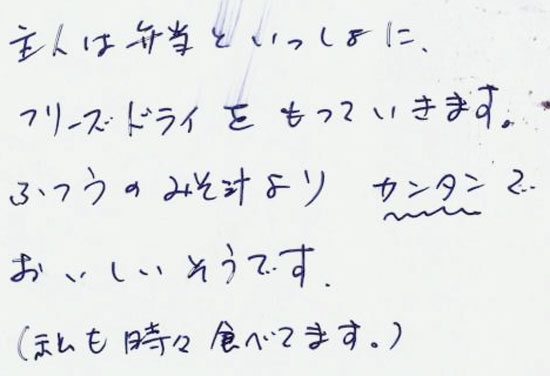 主人は弁当といっしょに、
フリーズドライをもっていきます。
ふつうのみそ汁より カンタンで
おいしいそうです.
(私も時々食べてます。)